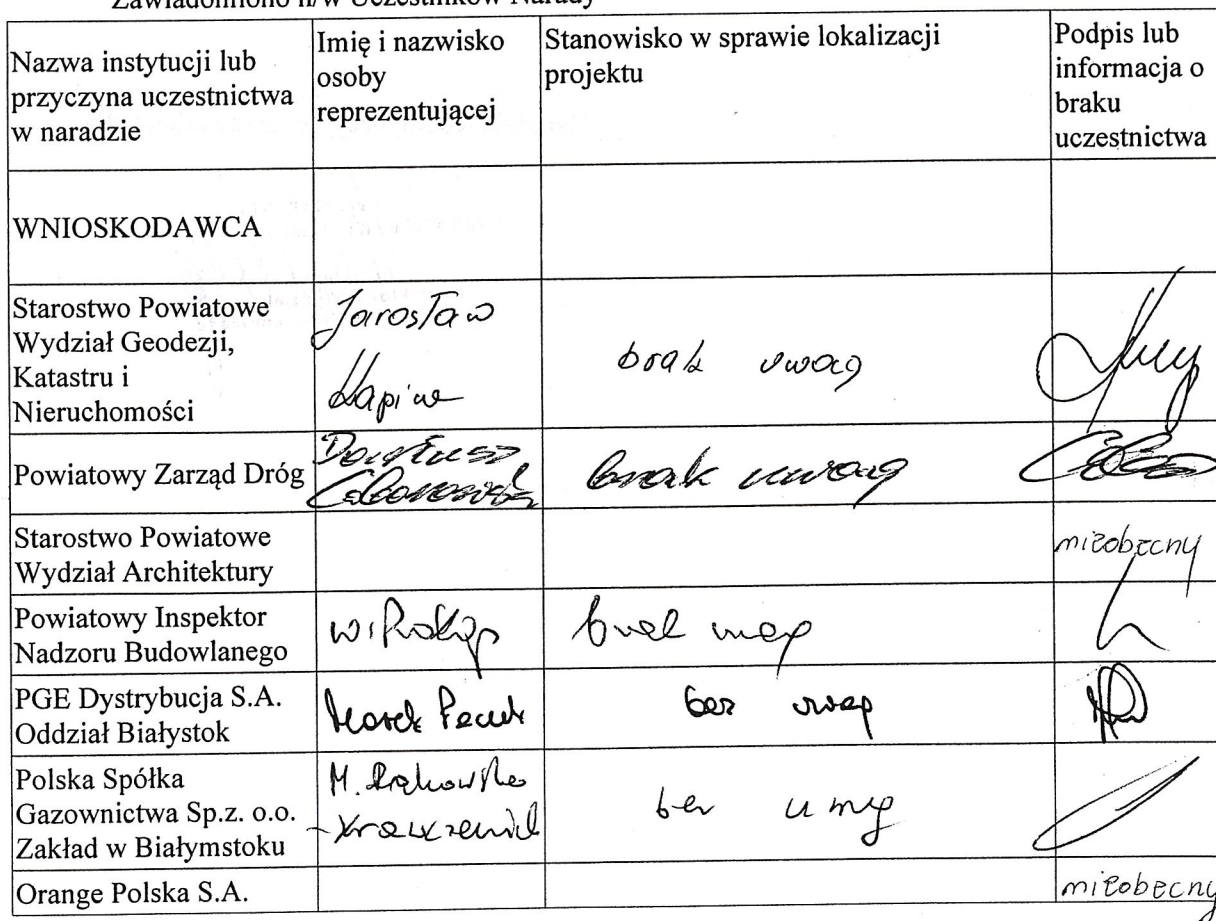 Zawiadomiono n/w Uczestników Narady
Nazwa instytucji lub
przyczyna uczestnictwa
w naradzie
Imię i nazwisko
osoby
reprezentującej
Stanowisko w sprawie lokalizacji
projektu
Podpis lub
informacja o
braku
uczestnictwa
WNIOSKODAWCA
Starostwo Powiatowe
Wydział Geodezji,
Katastru i
Nieruchomości
Jarosław
brak uwag
Powiatowy Zarząd Dróg
Dariusz
brak uwag
Starostwo Powiatowe
Wydział Architektury
nieobecny
Powiatowy Inspektor
Nadzoru Budowlanego
W. Prokop
brak uwag
PGE Dystrybucja S.A.
Oddział Białystok
Marek
bez uwag
Polska Spółka
Gazownictwa Sp.z. o.o.
Zakład w Białymstoku
M.
bez uwag
Orange Polska S.A.
nieobecny